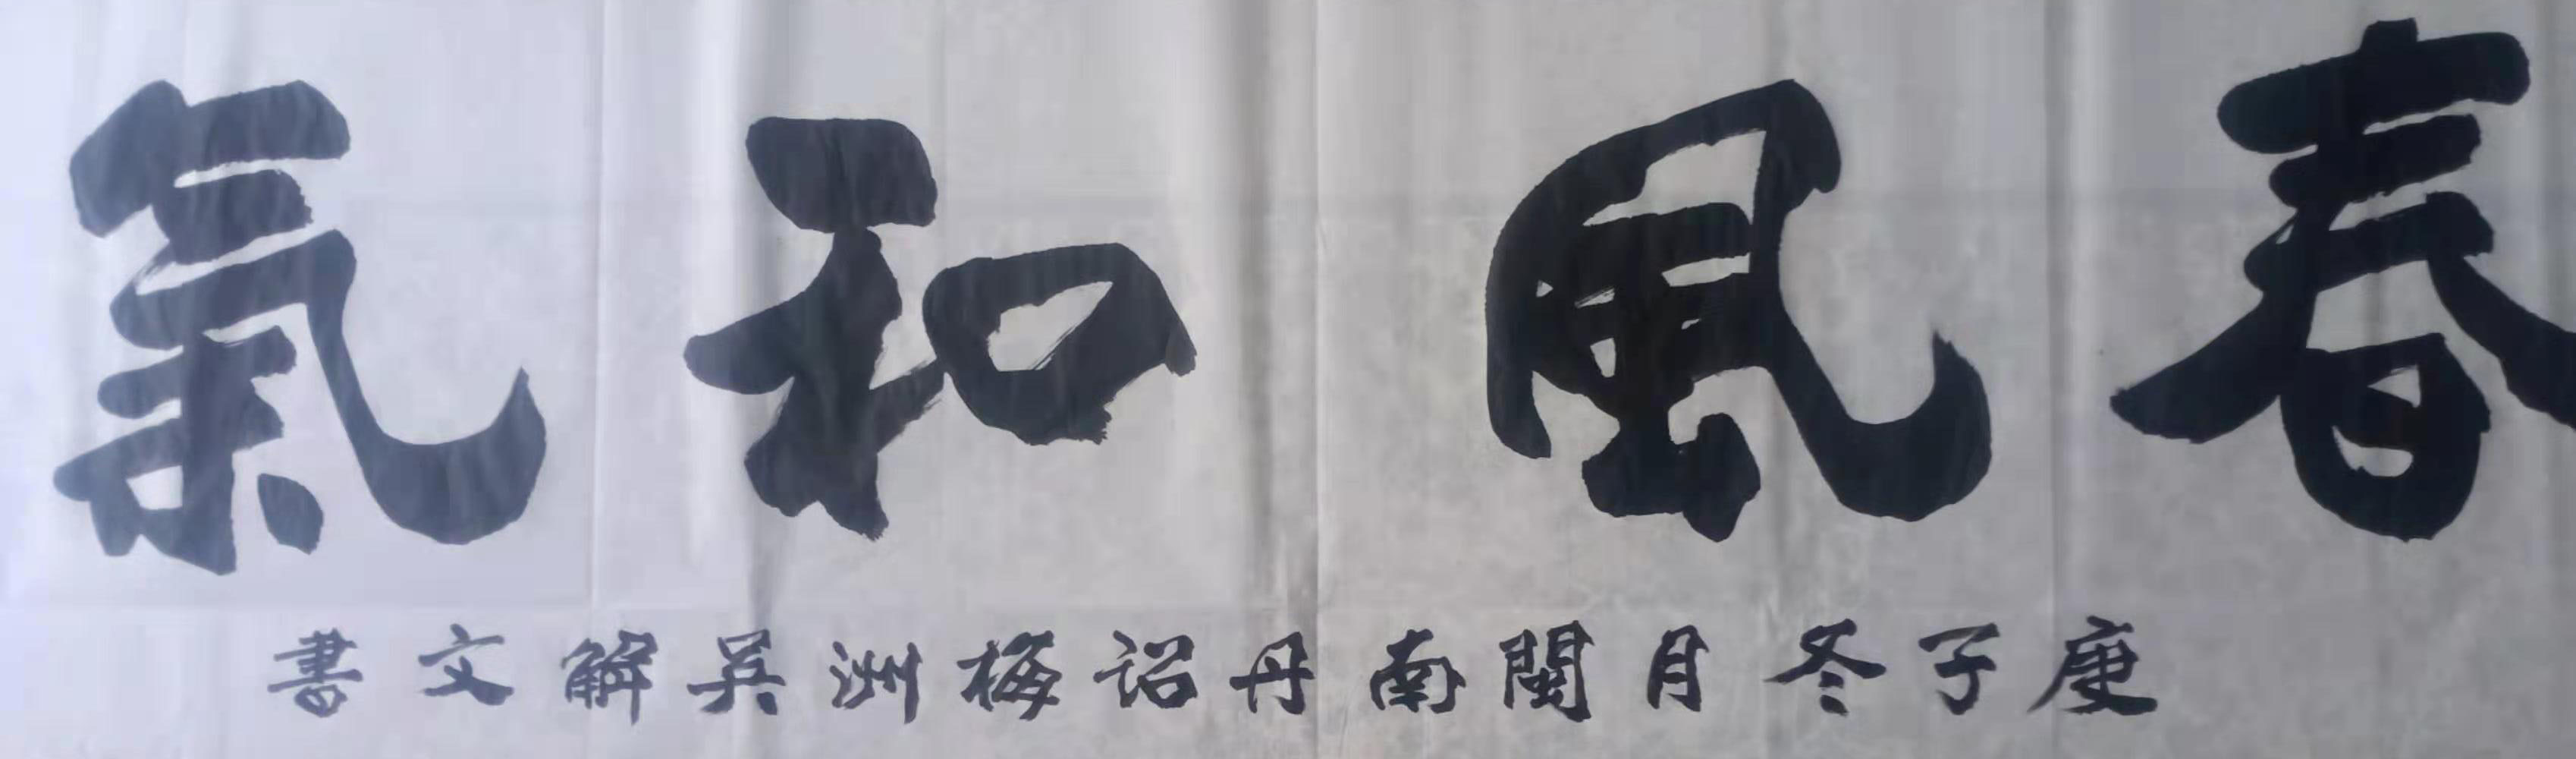 春風和氣
庚子冬月閩南丹詔梅洲吳解文書